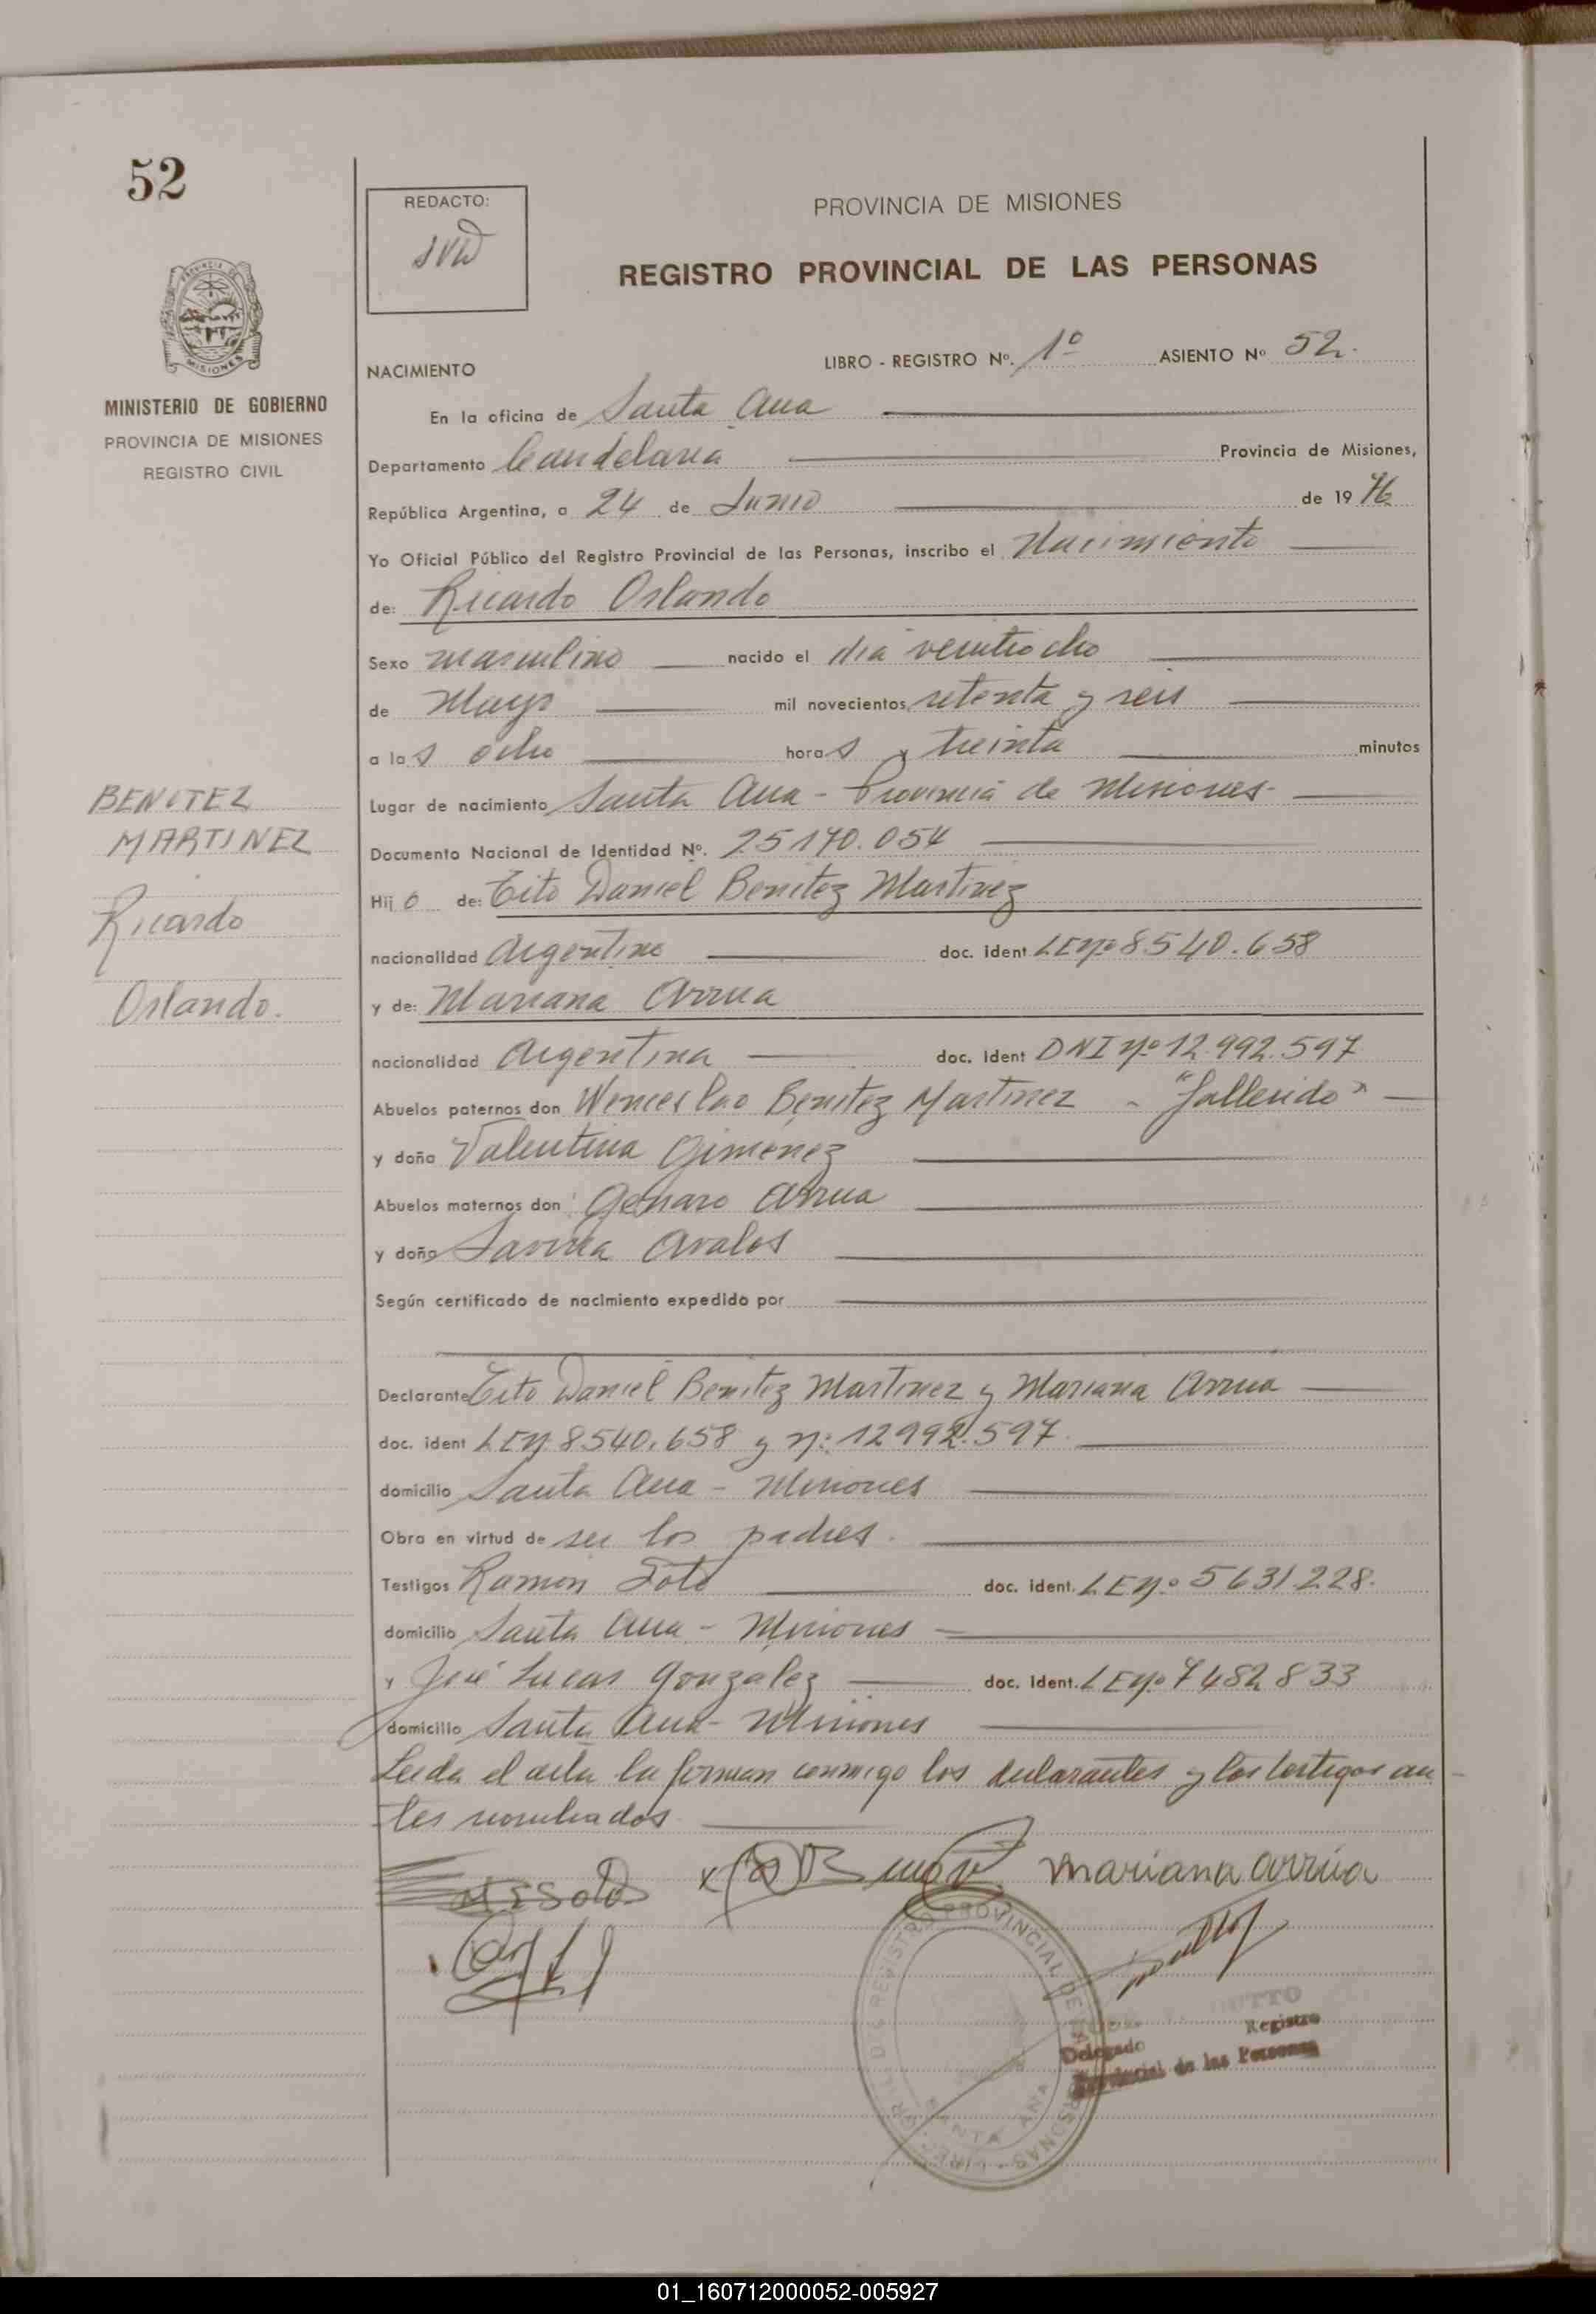 52
REDACTO:
PROVINCIA DE MISIONES
REGISTRO PROVINCIAL DE LAS PERSONAS
MISIONES
MINISTERIO DE GOBIERNO
PROVINCIA DE MISIONES
REGISTRO CIVIL
NACIMIENTO
LIBRO - REGISTRO Nº. 1º ASIENTO Nº 52.
En la oficina de Santa Ana
Departamento Candelaria Provincia de Misiones,
República Argentina, a 24 de Junio de 19 76
Yo Oficial Público del Registro Provincial de las Personas, inscribo el Nacimiento
de: Ricardo Orlando
Sexo masculino nacido el dia veintiocho
de Mayo mil novecientos setenta y seis
a las ocho horas y treinta minutos
Lugar de nacimiento Santa Ana - Provincia de Misiones-
Documento Nacional de Identidad Nº. 25170.054
Hijo de: Tito Daniel Benitez Martinez
nacionalidad Argentino doc. ident LE nº 8.540.658
y de: Mariana Arrua
nacionalidad Argentina doc. ident DNI nº 12.992.597
Abuelos paternos don Wenceslao Benitez Martinez - "fallecido"
y doña Valentina Gimenez
Abuelos maternos don Genaro Arrua
y doña Savina Avalos
Según certificado de nacimiento expedido por
Declarante Tito Daniel Benitez Martinez y Mariana Arrua
doc. ident LE nº 8540.658 y nº: 12992.597.
domicilio Santa Ana - Misiones
Obra en virtud de ser los padres.
Testigos Ramon Soto doc. ident. LE nº 5631.228.
domicilio Santa Ana - Misiones
y José Lucas Gonzalez doc. ident. LE nº 7482833
domicilio Santa Ana - Misiones
Leida el acta la firman conmigo los declarantes y los testigos an-
tes nombrados
BENITEZ
MARTINEZ
Ricardo
Orlando.
mariana arrúa
REGISTRO PROVINCIAL DE
PERSONAS
SANTA ANA
Delegado Registro
Provincial de las Personas
01_160712000052-005927